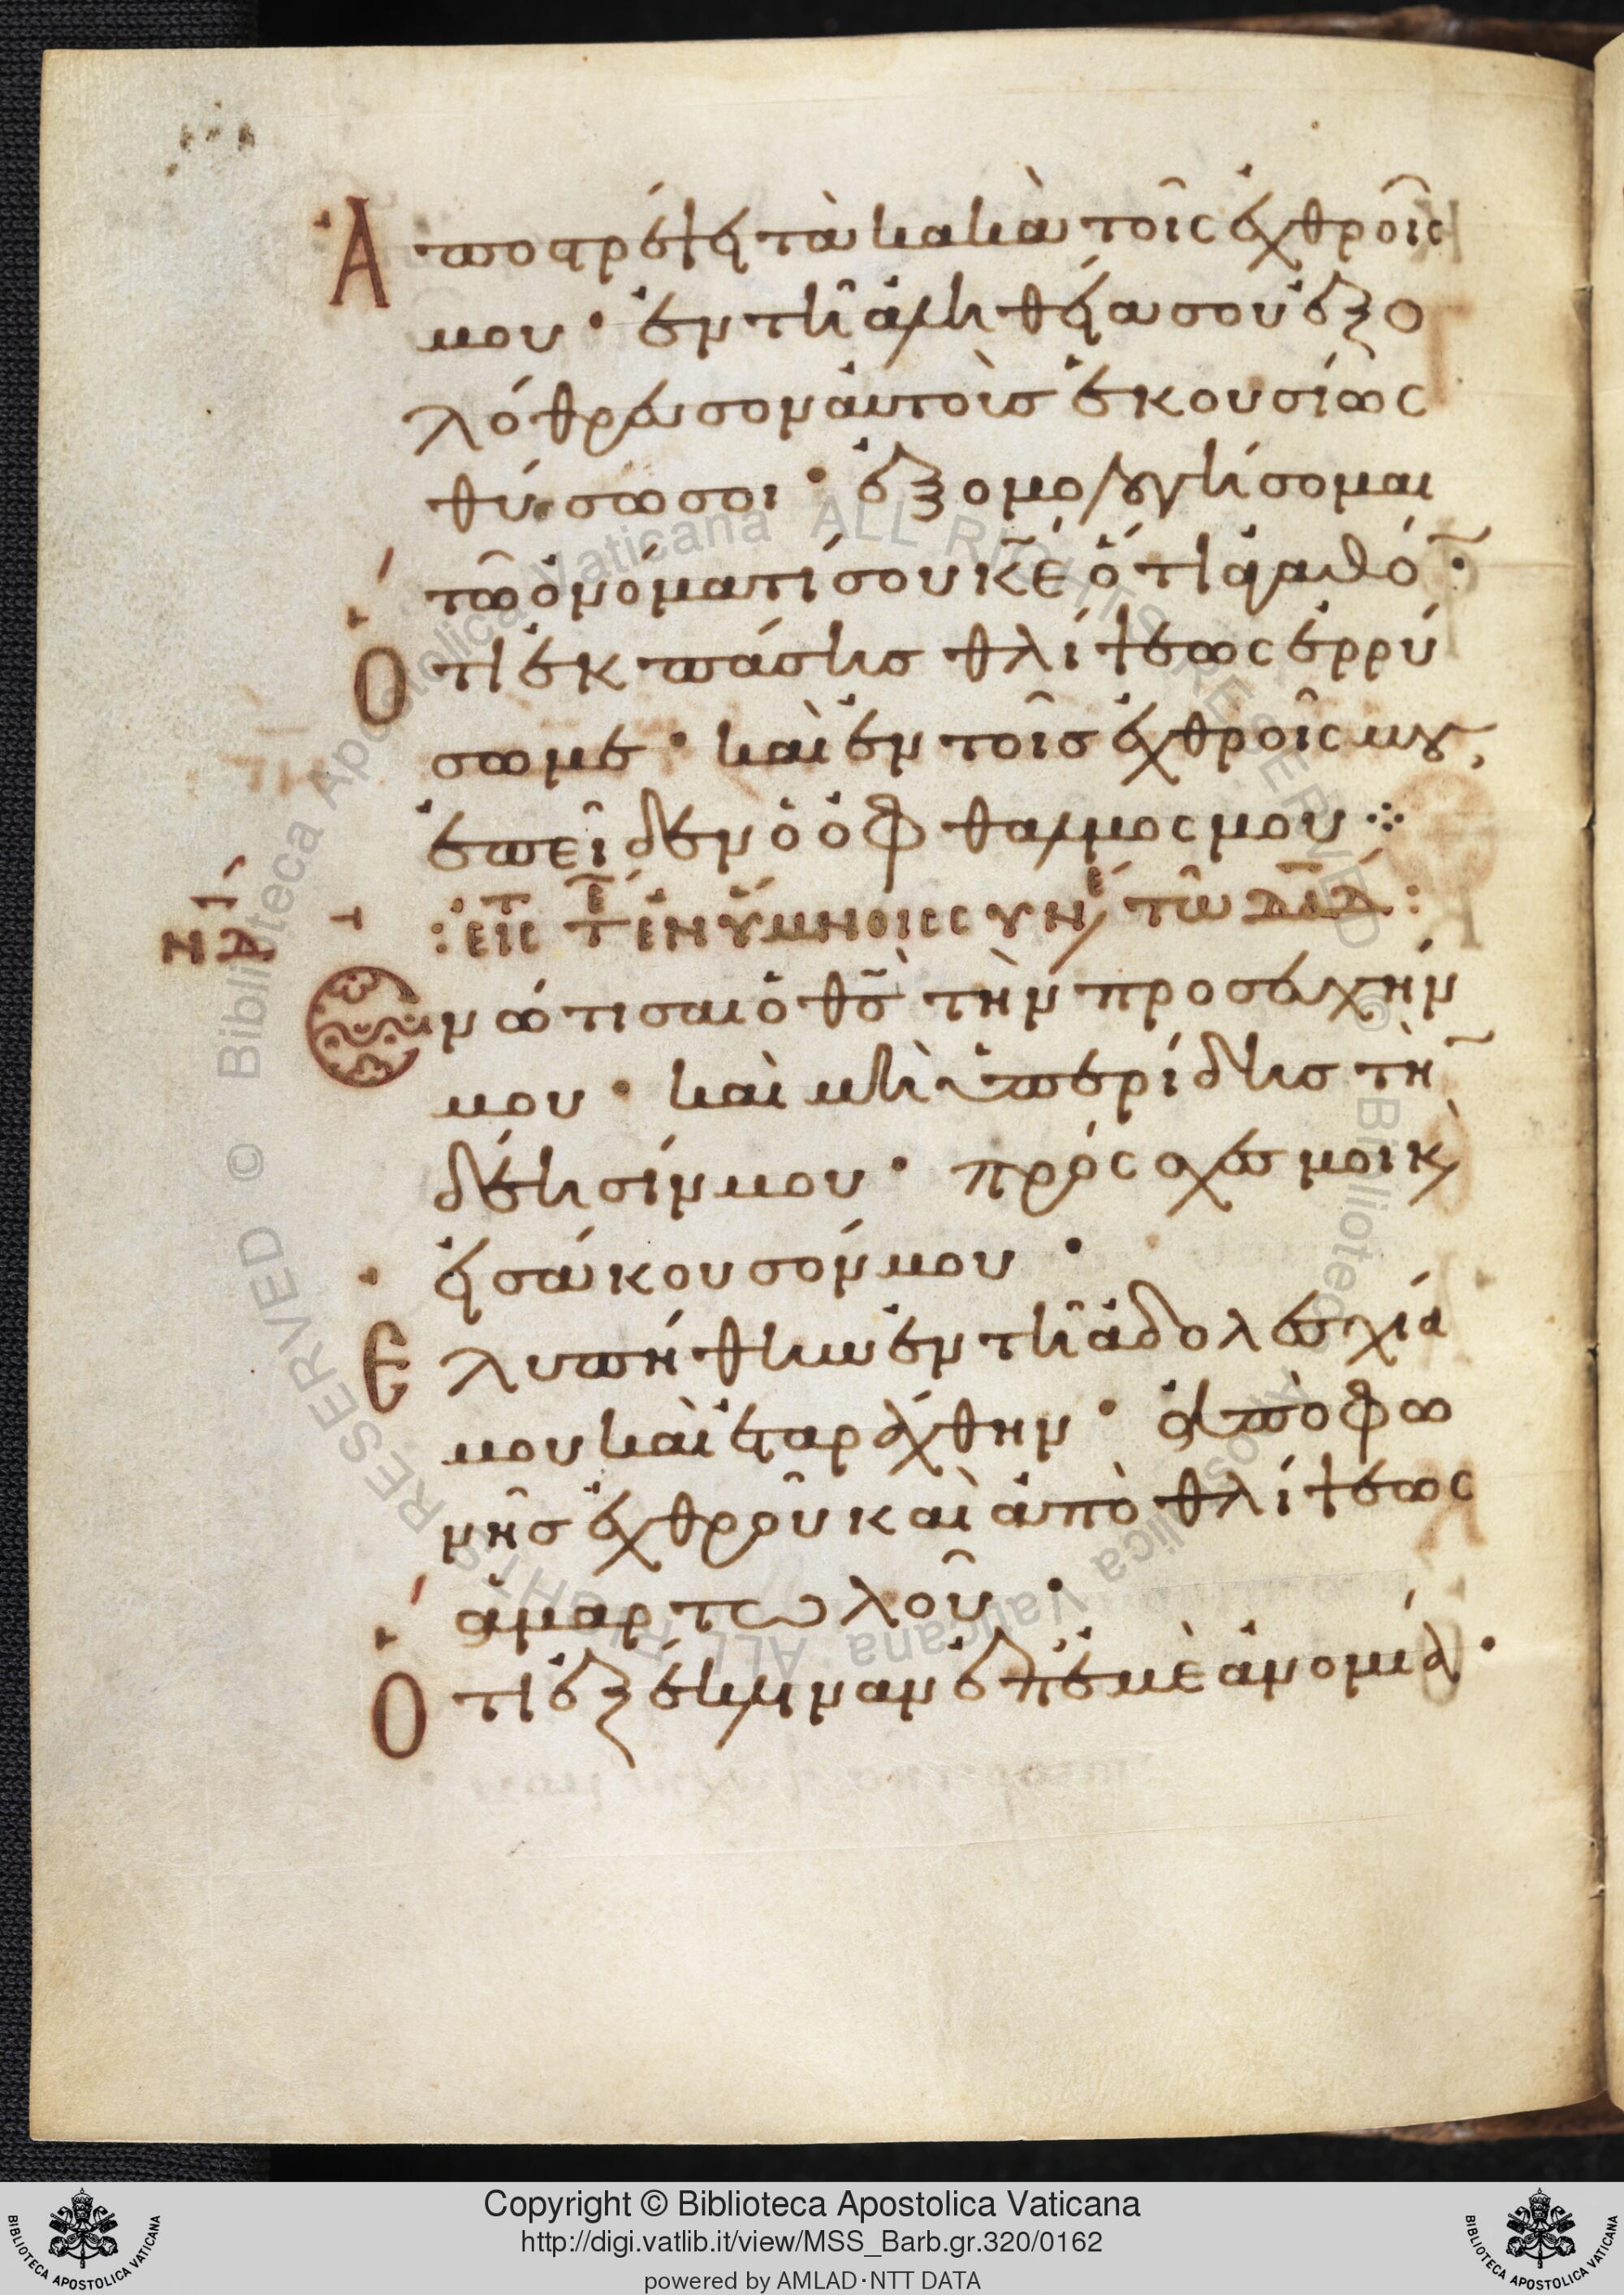 Ἀποστρέψει τὰ κακὰ τοῖς ἐχθροῖς
μου· ἐν τῆ ἀληθεία σου ἐξο
λόθρευσον αὐτοὺσ ἑκουσίως
θύσω σοι· ἐξομολογήσομαι
τῶ ὀνόματί σου κ̅ε̅ ὅτι ἀγαθό̅·
Ὅτι ἐκ πάσησ θλίψεως ἐρρύ
σω με· καὶ ἐν τοῖσ ἐχθροῖς μου
ἐπεῖδεν ὁ ὀφθαλμος μου ⁘
ΝΔ
:εἰς τ τε ἐν ὕμνοις συνέ τῶ δα̅δ̅:
Ἐνώτισαι ὁ θ̅σ̅ τὴν προσευχήν
μου· καὶ μὴ ὑπερίδησ τὴ̅
δέησίν μου· πρόσχεσ μοι κ
εἰσάκουσόν μου·
Ἐλυπήθην ἐν τῆ ἀδολεσχία
μου καὶ ἐταράχθην· ἀπὸ φω
νῆσ ἐχθροῦ καὶ ἀπὸ θλίψεως
ἁμαρτωλοῦ·
Ὅτι ἐξέκλιναν ἐπ ἐμὲ ἀνομία·
Copyright © Biblioteca Apostolica Vaticana
http://digi.vatlib.it/view/MSS_Barb.gr.320/0162
powered by AMLAD·NTT DATA
BIBLIOTECA APOSTOLICA VATICANA
BIBLIOTECA APOSTOLICA VATICANA